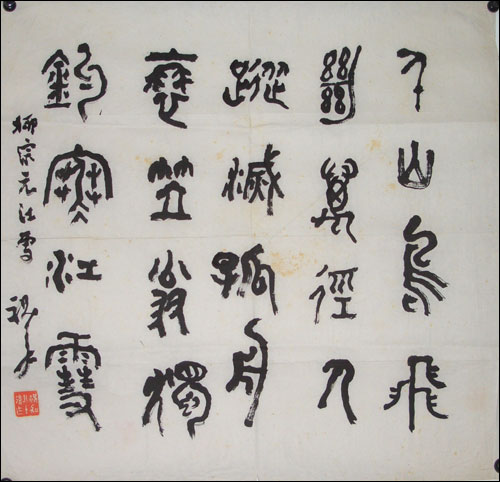 千山鳥飛
絕萬徑人
蹤滅孤舟
蓑笠翁獨
釣寒江雪
柳宗元江雪